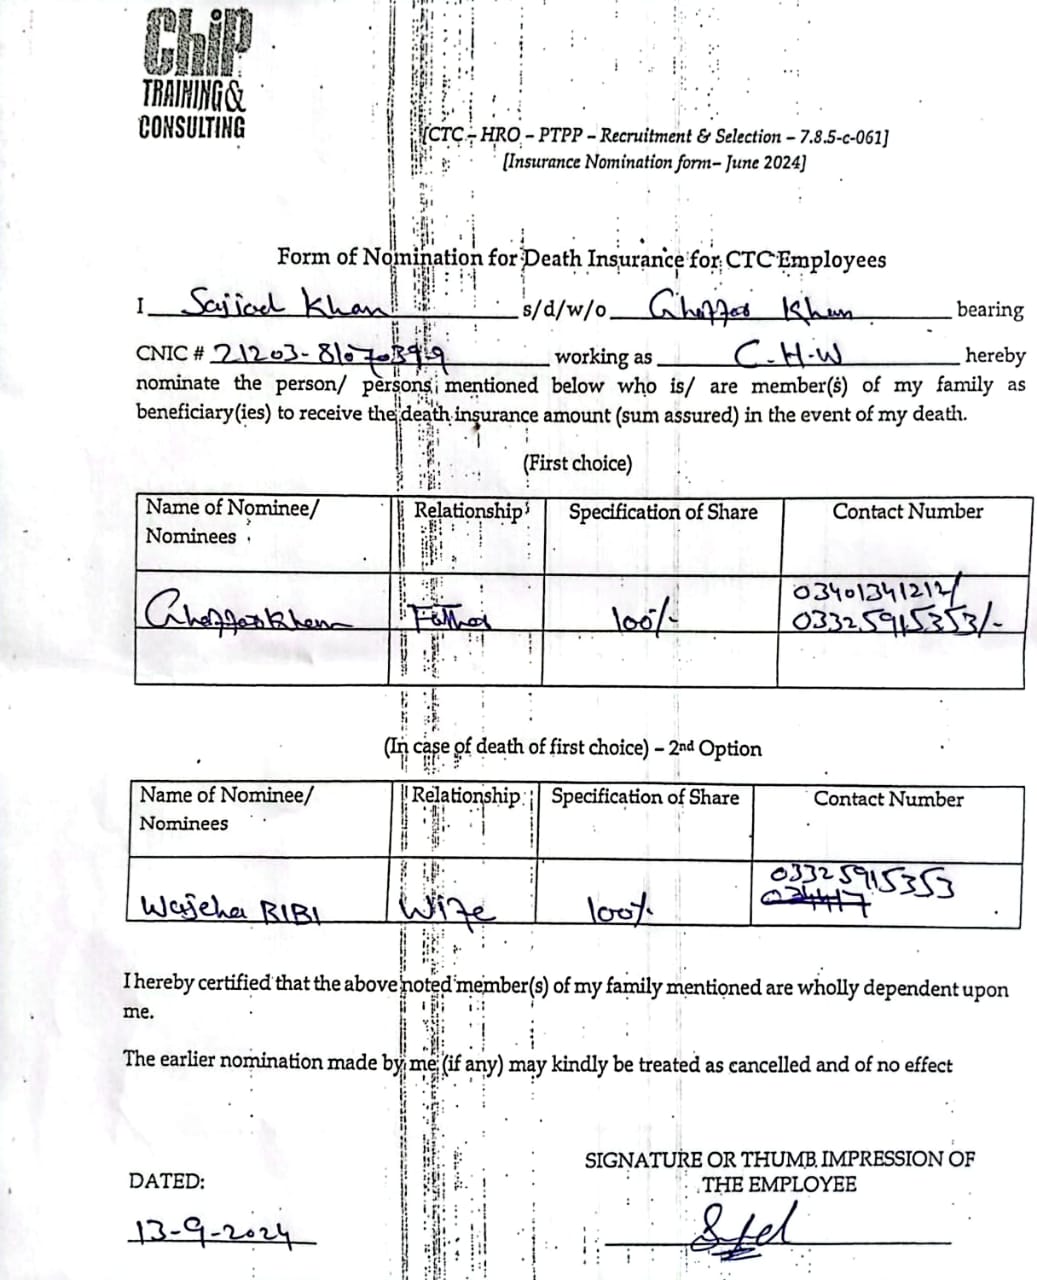 ChiP
TRAINING &
CONSULTING
[CTC – HRO – PTPP – Recruitment & Selection – 7.8.5-c-061]
[Insurance Nomination form– June 2024]
Form of Nomination for Death Insurance for CTC Employees
I Sajjad Khan s/d/w/o Ghaffar Khan bearing
CNIC # 21203-8107039-9 working as C.H.W hereby
nominate the person/ persons mentioned below who is/ are member(s) of my family as
beneficiary(ies) to receive the death insurance amount (sum assured) in the event of my death.
(First choice)
Name of Nominee/ Nominees Relationship Specification of Share Contact Number
Ghaffar Khan Father 100% 03401341212/
03325915353/-
(In case of death of first choice) – 2nd Option
Name of Nominee/ Nominees Relationship Specification of Share Contact Number
Wajeha BIBI Wife 100% 03325915353
I hereby certified that the above noted member(s) of my family mentioned are wholly dependent upon
me.
The earlier nomination made by me (if any) may kindly be treated as cancelled and of no effect
SIGNATURE OR THUMB IMPRESSION OF
THE EMPLOYEE
DATED:
13-9-2024